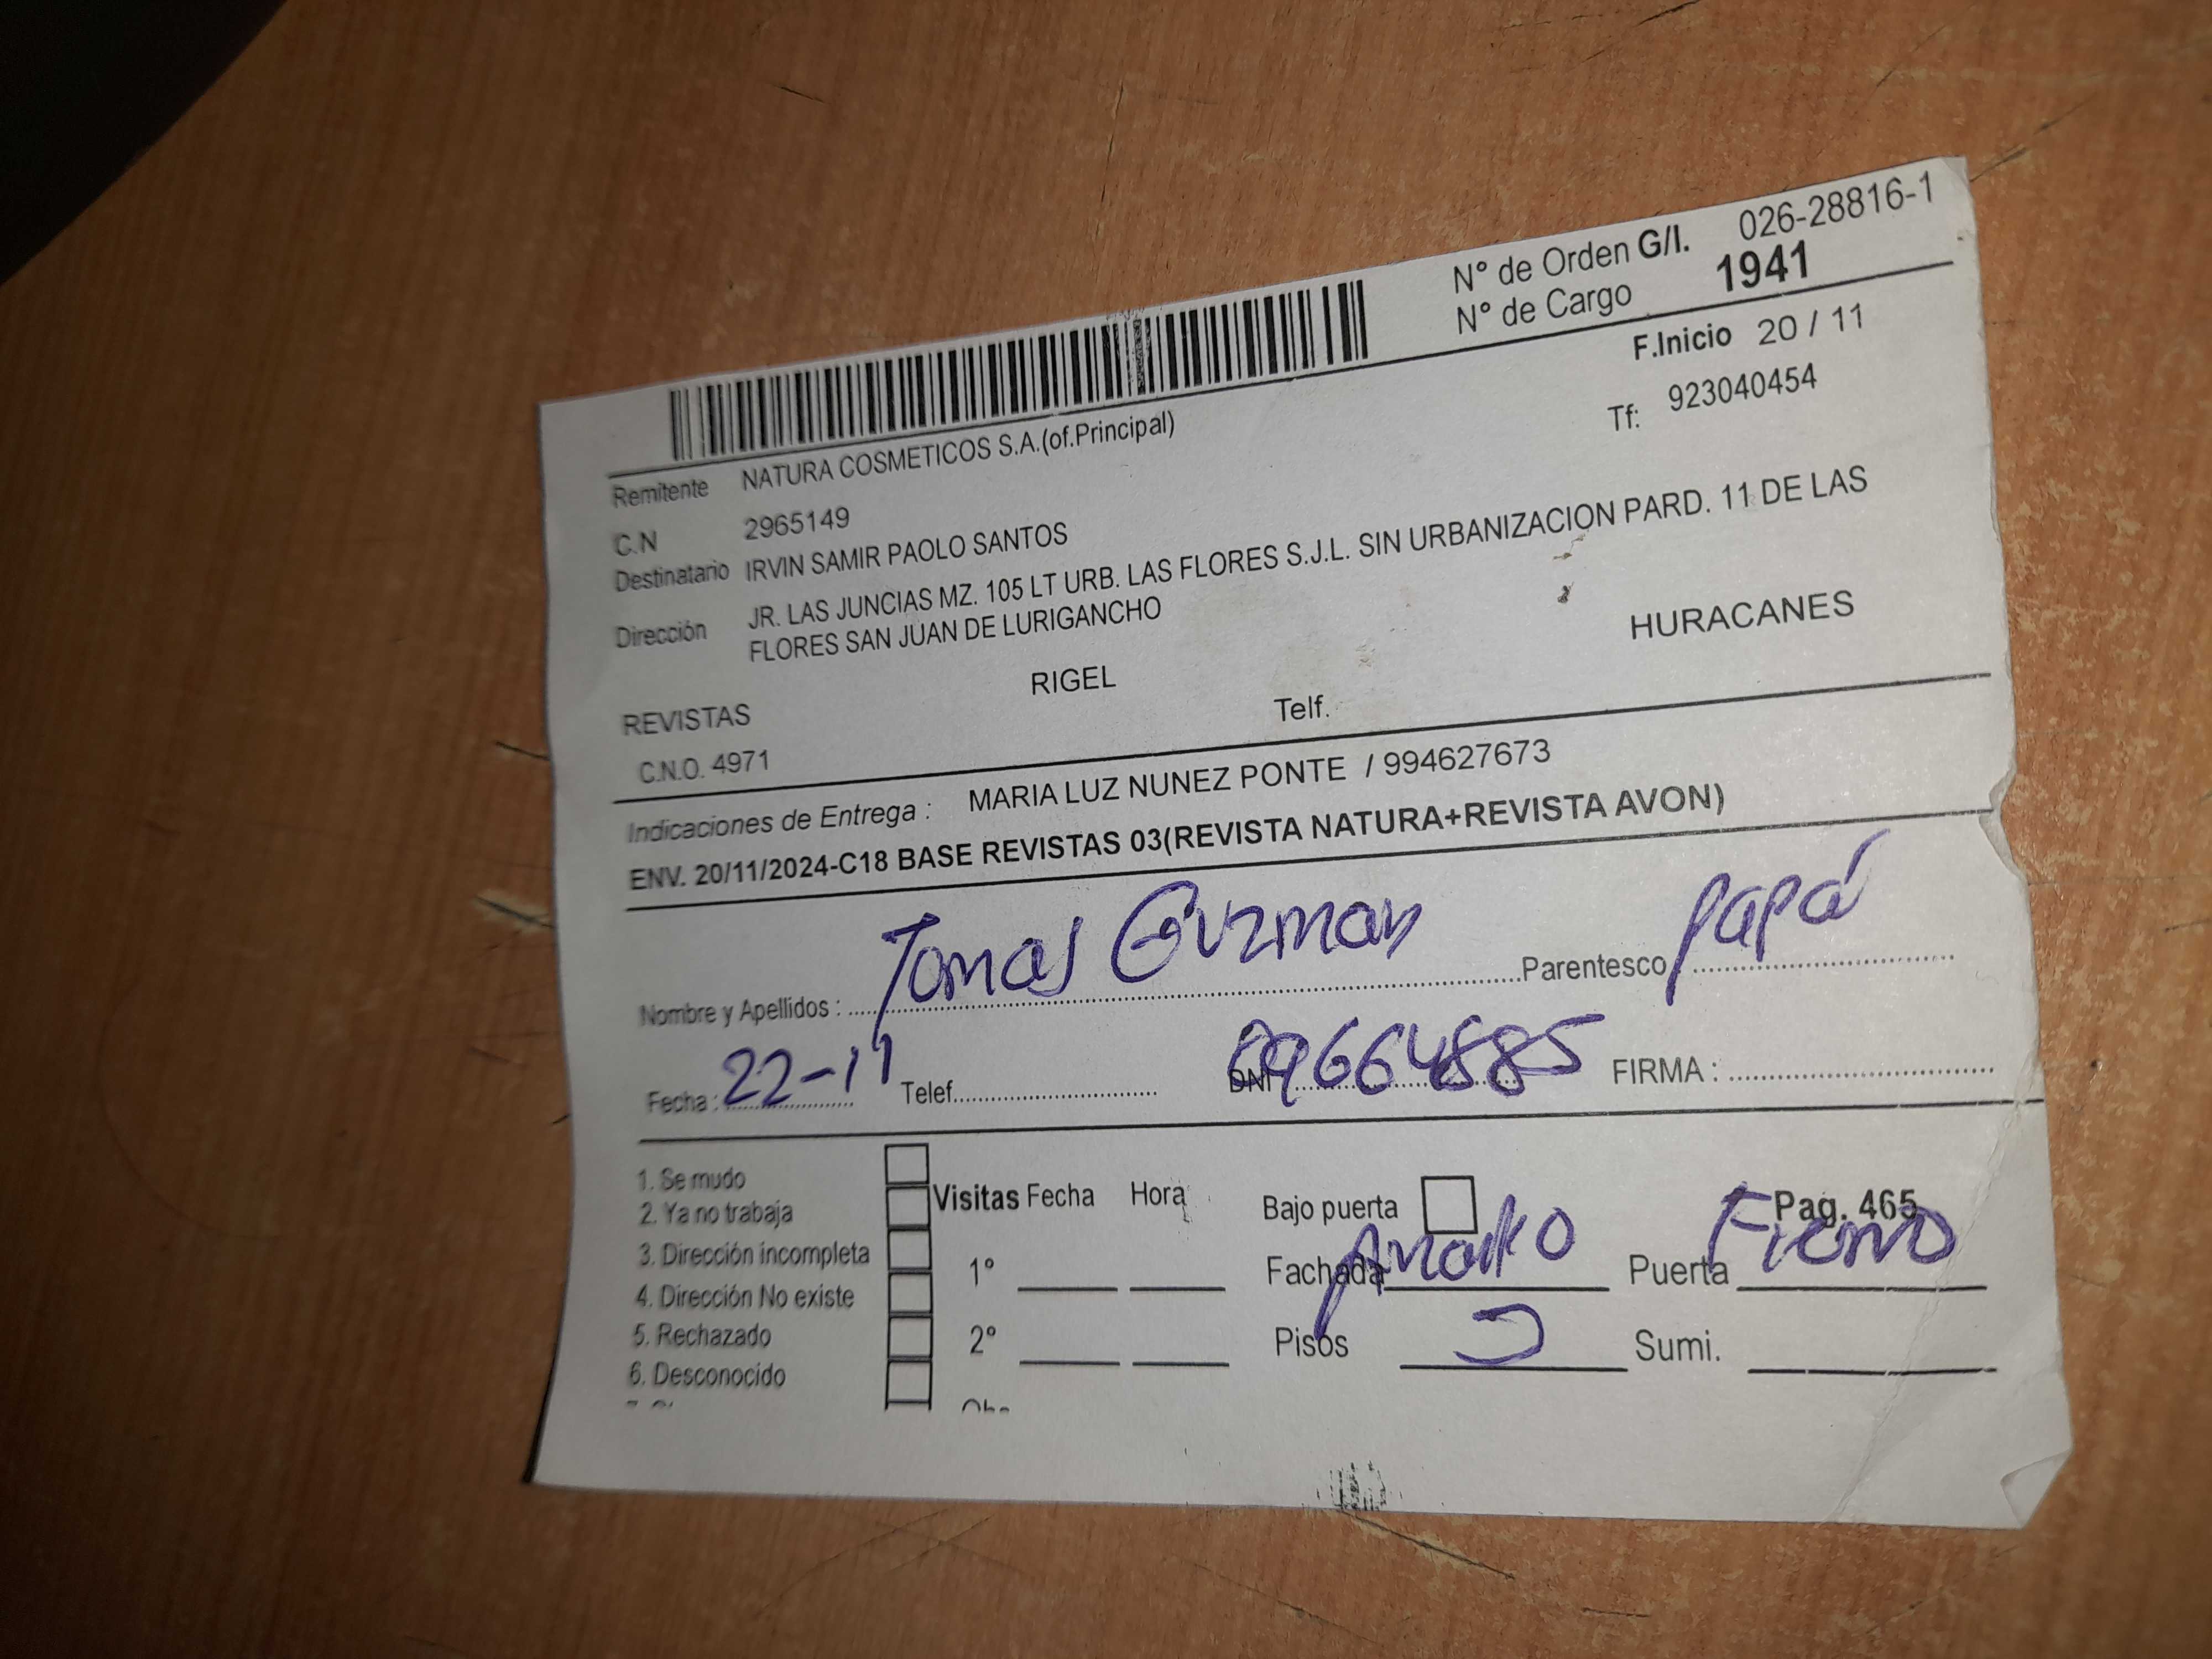 N° de Orden G/I. 026-28816-1
N° de Cargo 1941
F.Inicio 20 / 11
Remitente NATURA COSMETICOS S.A.(of.Principal) Tf: 923040454
C.N 2965149
Destinatario IRVIN SAMIR PAOLO SANTOS
Dirección JR. LAS JUNCIAS MZ. 105 LT URB. LAS FLORES S.J.L. SIN URBANIZACION PARD. 11 DE LAS
FLORES SAN JUAN DE LURIGANCHO
REVISTAS RIGEL HURACANES
C.N.O. 4971 Telf.
Indicaciones de Entrega : MARIA LUZ NUNEZ PONTE / 994627673
ENV. 20/11/2024-C18 BASE REVISTAS 03(REVISTA NATURA+REVISTA AVON)
Nombre y Apellidos : Tomas Guzman Parentesco Papá
Fecha : 22-11 Telef. DNI 09664885 FIRMA :
1. Se mudo
2. Ya no trabaja Visitas Fecha Hora Bajo puerta Pag. 465
3. Dirección incompleta 1° Fachada Puerta Fierro
4. Dirección No existe
5. Rechazado 2° Pisos Sumi.
6. Desconocido